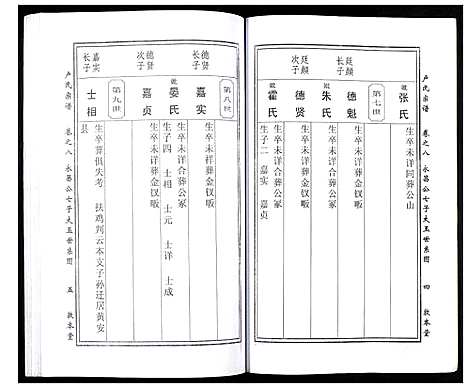 卢氏宗谱 卷之八 永昌公七子大五世系图 四 敦本堂
妣 张氏
生卒未详同葬公山
第七世
廷颜长子
德魁
妣 朱氏
生卒未详合葬公冢
廷颜次子
德贤
生卒未详葬金钗畈
妣 霍氏
生卒未详合葬公冢
生子二 嘉实 嘉贞
第八世
德贤长子
嘉实
生卒未祥葬金钗畈
妣 晏氏
生卒未详合葬公冢
生子四 士相 士元 士详 士成
德贤次子
嘉贞
生卒未详葬金钗畈
第九世
嘉实长子
士相
生卒葬俱失考 扶鸡判云本文子孙迁居黄安
县
卢氏宗谱 卷之八 永昌公七子大五世系图 五 敦本堂